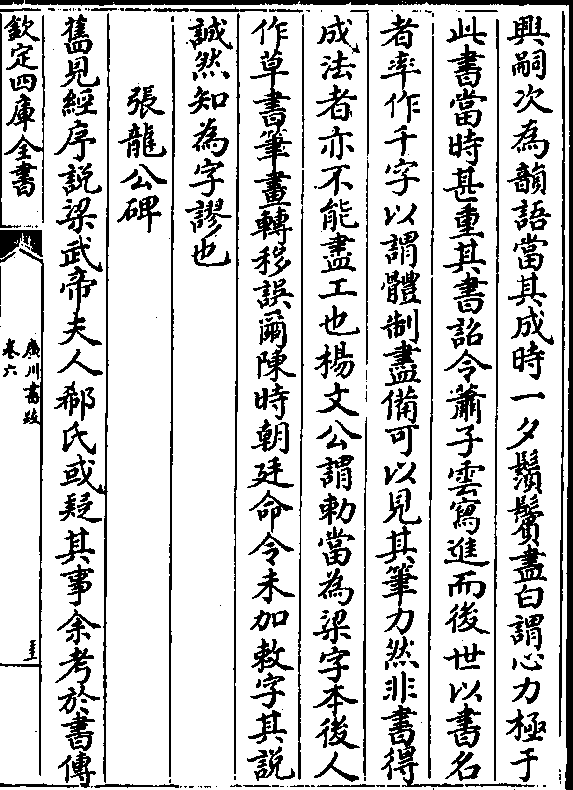 興嗣次為韻語當其成時一夕鬚鬢盡白謂心力極于
此書當時甚重其書詔令蕭子雲寫進而後世以書名
者率作千字以謂體制盡備可以見其筆力然非書得
成法者亦不能盡工也楊文公謂勅當為梁字本後人
作草書筆畫轉移誤爾陳時朝廷命令未加敕字其說
誠然知為字謬也
張龍公碑
舊見經序說梁武帝夫人郗氏或疑其事余考於書傳
欽定四庫全書
廣川書跋
卷六